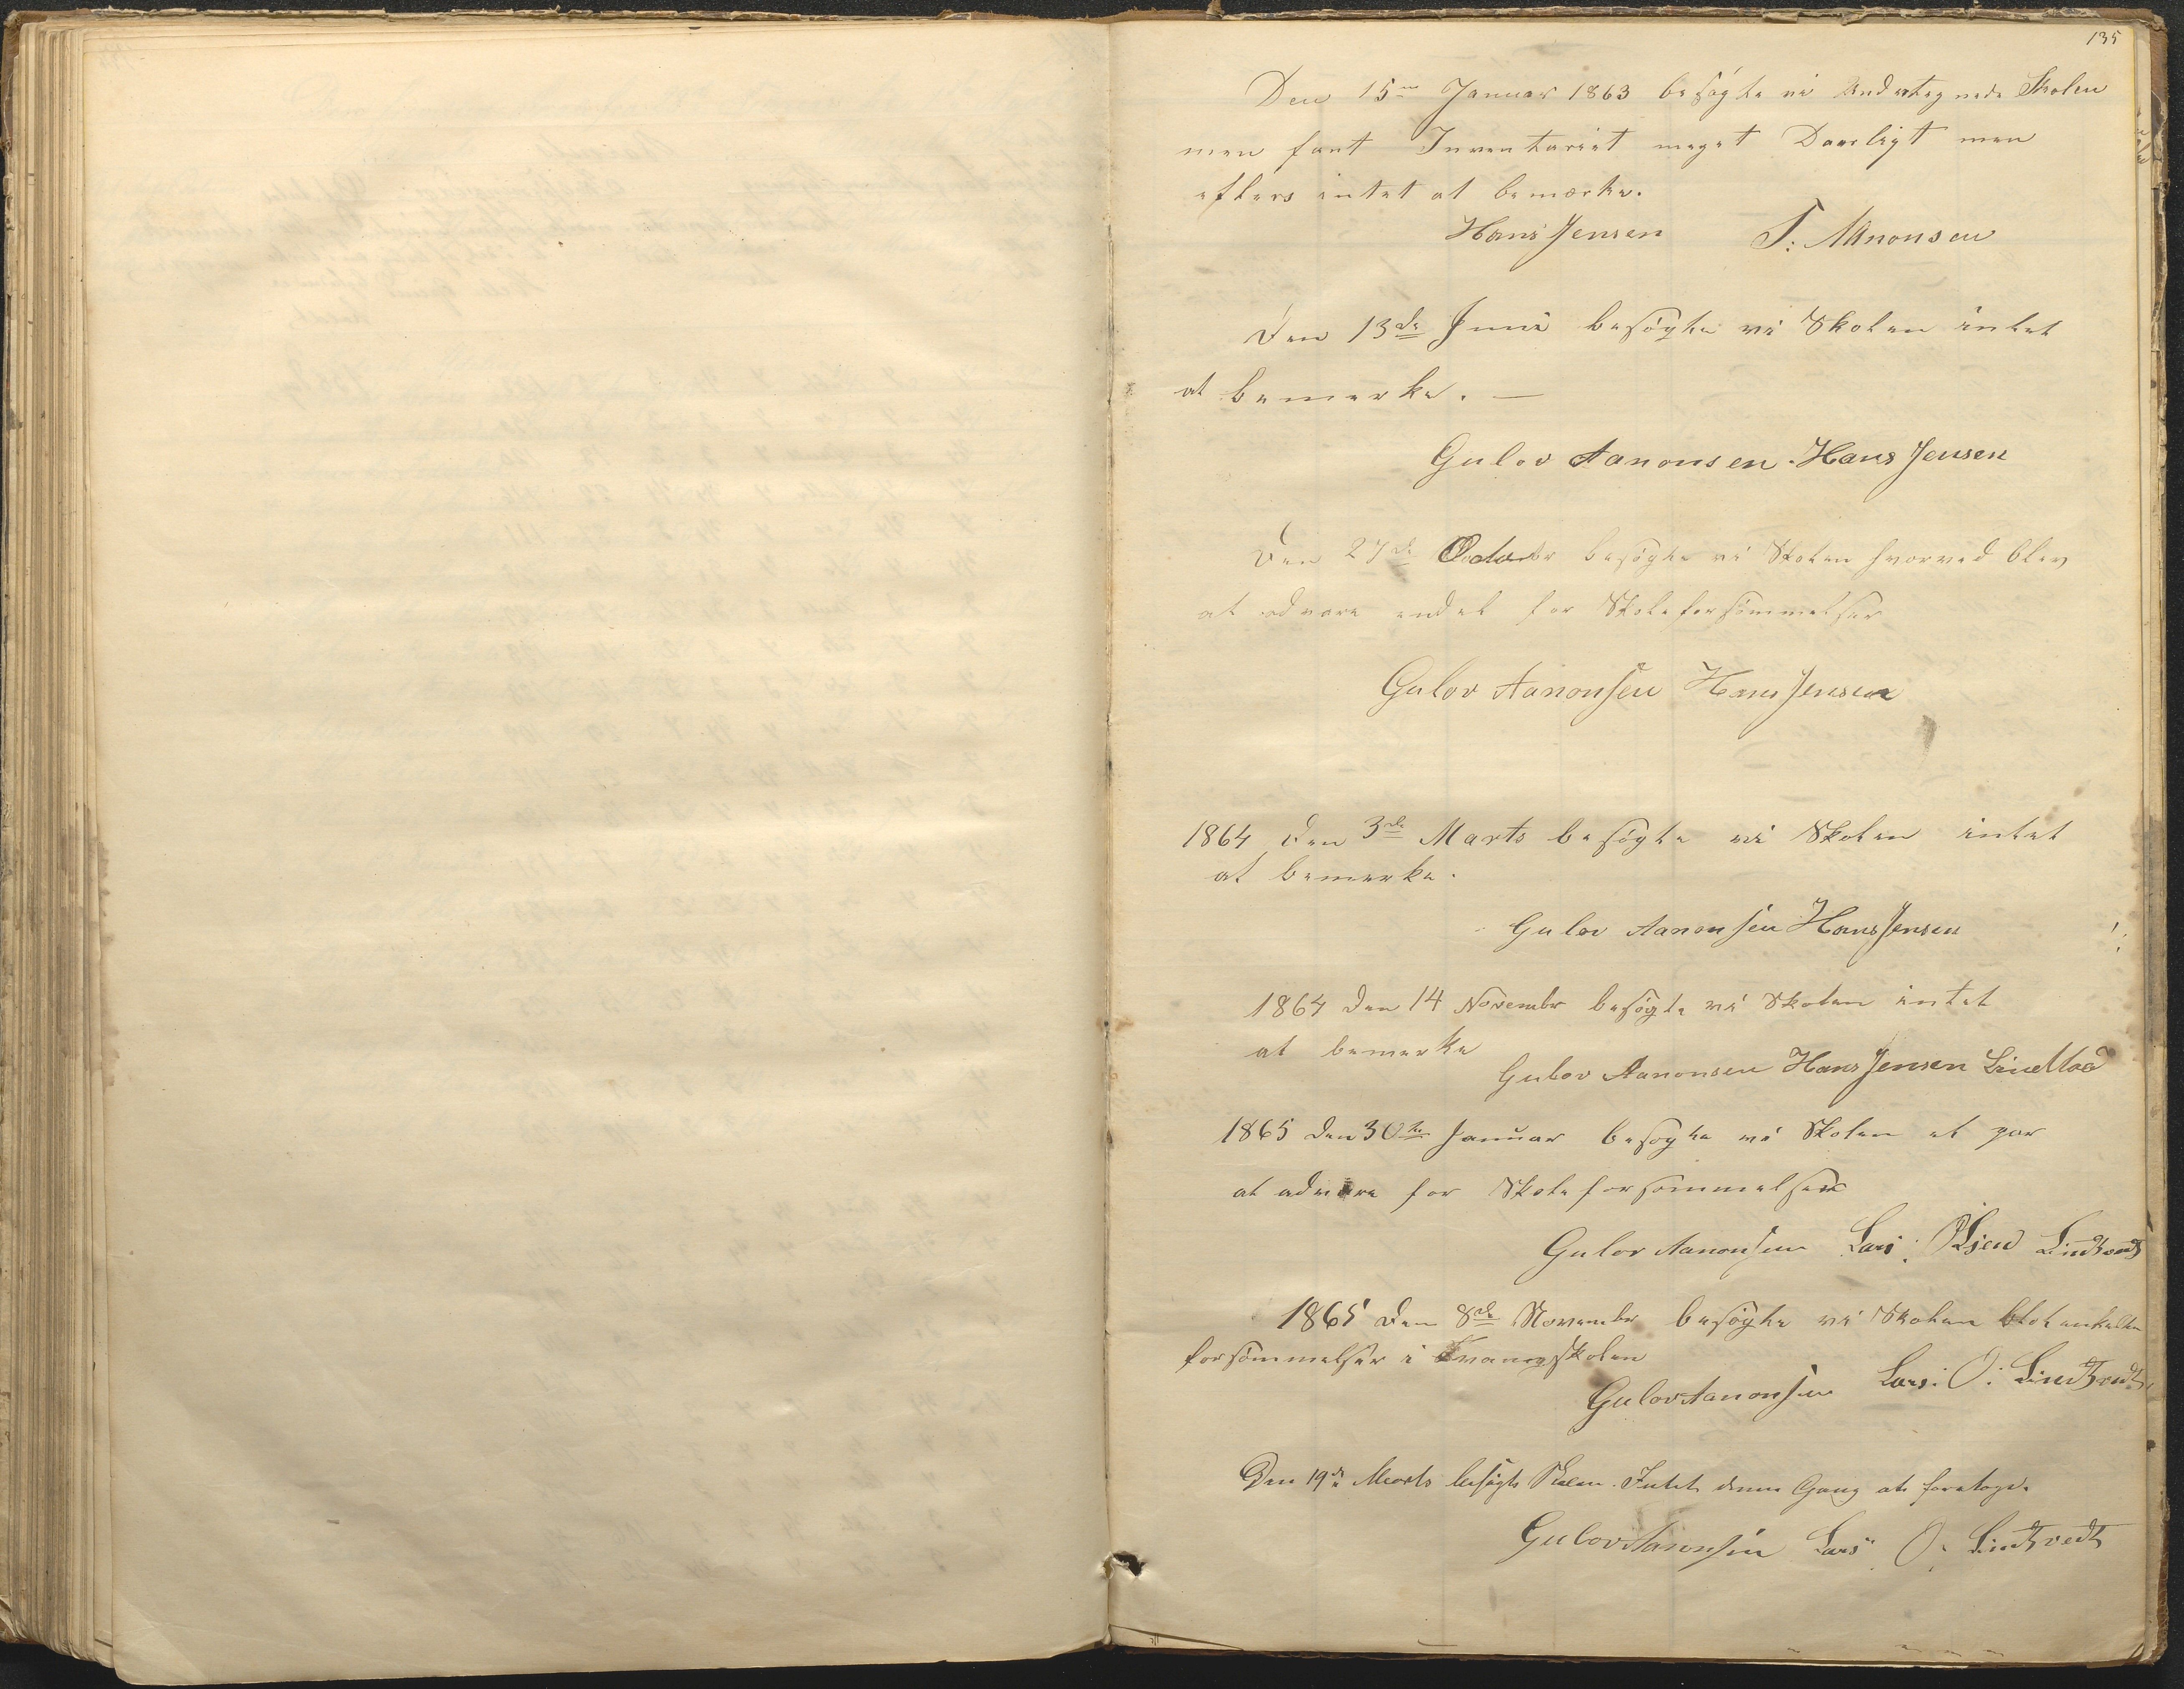 135
Den 15de Januar 1863 besøgte vi Undertegnede Skolen
men fant Inventariet meget Daarligt men
ellers intet at bemærke.
Hans Jensen T: Aanonsen
Den 13de Juni besøgte vi Skolen intet
at bemerke. —
Gulov Aanonsen Hans Jensen
Den 27de Octobr besøgte vi Skolen hvorved blev
at advare endel for Skoleforsømmelser
Gulov Aanonsen Hans Jensen
1864 den 3de Marts besøgte vi Skolen intet
at bemerke.
Gulov Aanonsen Hans Jensen
1864 den 14 Novembr besøgte vi Skolen intet
at bemerke
Gulov Aanonsen Hans Jensen
1865 den 30te Januar besøgte vi Skolen et par
at advare for Skoleforsømmelser
Gulov Aanonsen Lars: Olsen Lindtvedt
1865 den 8de Novembr besøgte vi Skolen blot enkelte
forsømmelser i Kvangskolen
Gulov Aanonsen Lars: O: Lindtvedt
Den 19de Marts besøgte Skolen. Intet denne Gang at foretage.
Gulov Aanonsen Lars O: Lindtvedt